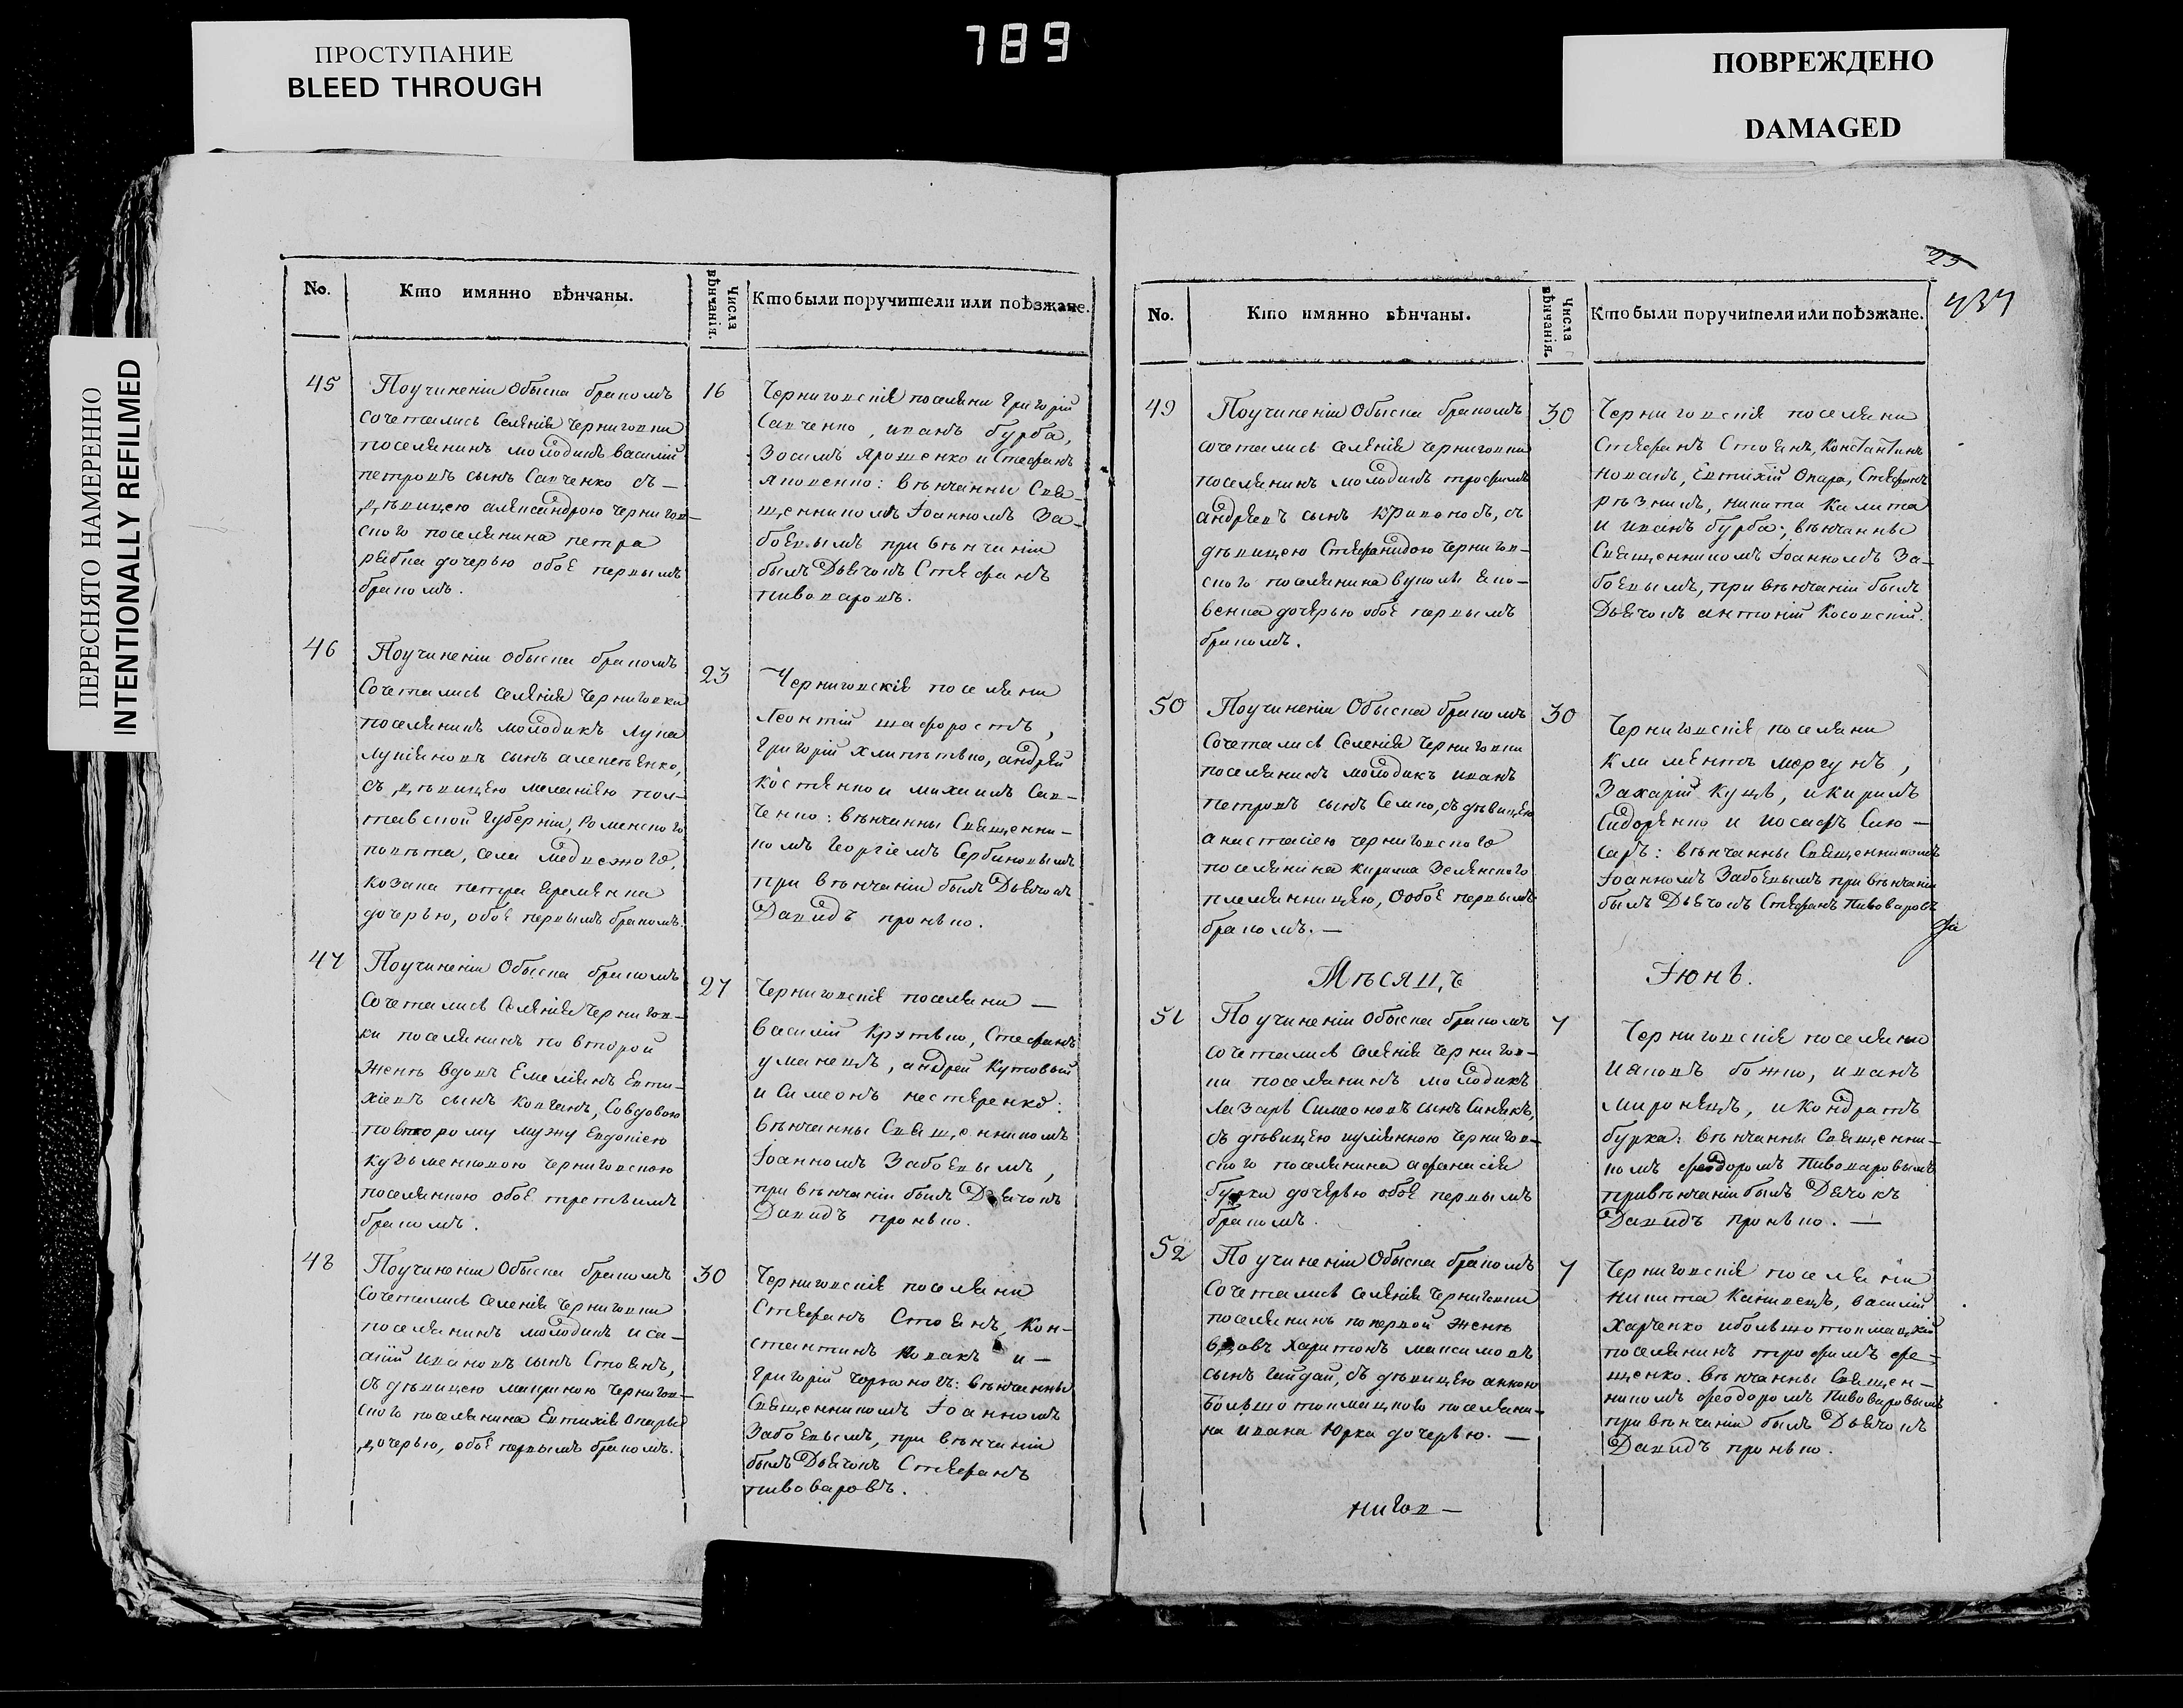 789
ПРОСТУПАНИЕ
BLEED THROUGH
ПОВРЕЖДЕНО
DAMAGED
ПЕРЕСНЯТО НАМЕРЕННО
INTENTIONALLY REFILMED
No.
Кто имянно вѣнчаны.
Числа
вѣнчанія.
Кто были поручители или поѣзжане.
45
Поучиненіи Обыска бракомъ
сочетались Селенія Черниговки
поселянинъ молодикъ василій
петровъ сынъ Савченко съ —
дѣвицею александрою Чернигов—
ского поселянина петра
рябка дочерью обоѣ первымъ
бракомъ.
16
Черниговскія поселяни Григорій
Савченко, иванъ бурба,
Зосимъ Ярошенко и Стефанъ
яковенко: вѣнчанны Свя-
щенникомъ Іоанномъ За-
боевымъ при вѣнчаніи
былъ Дьячокъ Стефанъ
пивоваровъ.
46
Поучиненіи обыска бракомъ
Сочетались Селенія Черниговки
поселянинъ молодикъ лука
лукіяновъ сынъ алексѣенко,
съ дѣвицею меланіею пол-
тавской Губерніи, Роменского
повѣта, села
козака петра яременка
дочерью, обоѣ первымъ бракомъ.
23
Черниговскія поселяни
Леонтій шафоростъ,
Григорій хлипѣтько, андрей
костенко и михаилъ Сав-
ченко: вѣнчанны Священни-
комъ Георгіемъ Сербиновымъ
при вѣнчаніи былъ Дьячокъ
Давидъ пронько.
47
Поучиненіи Обыска бракомъ
Сочетались Селенія Чернигов-
ки поселянинъ по второй
женѣ вдовъ Емеліянъ Евти-
хіевъ сынъ Ковганъ, Совдовою
повторому мужу Евдокіею
кузьменковою Черниговскою
поселянкою обоѣ третьимъ
бракомъ.
27
Черниговскія поселяни —
василій Крутько, Стефанъ
уманецъ, андрей Кутовый
и Симеонъ нестеренко:
вѣнчанны Священникомъ
Іоанномъ Забоевымъ,
при вѣнчаніи былъ Дьячокъ
Давидъ пронько.
48
Поучиненіи Обыска бракомъ
Сочетались Селенія Черниговки
поселянинъ молодикъ иса-
аій ивановъ сынъ Стоянъ,
съ дѣвицею мариною Чернигов—
ского поселянина Евтихія Опары
дочерью, обоѣ первымъ бракомъ.
30
Черниговскія поселяни
Стефанъ Стоянъ, Кон-
стантинъ Новакъ и —
Григорій : вѣнчанны
Священникомъ Іоанномъ
Забоевымъ, при вѣнчаніи
былъ Дьячокъ Стефанъ
пивоваровъ.
23
No.
Кто имянно вѣнчаны.
Числа
вѣнчанія.
Кто были поручители или поѣзжане.
49
Поучиненіи Обыска бракомъ
сочетались Селенія Черниговки
поселянинъ молодикъ трофимъ
андреевъ сынъ Кривоносъ, съ
дѣвицею Стефанидою Чернигов-
ского поселянина вуколы яко-
венка дочерью обоѣ первымъ
бракомъ.
30
Черниговскія поселяни
Стефанъ Стоянъ, Константинъ
новакъ, Евтихій Опара, Стефанъ
рѣзникъ, никита Калита
и иванъ бурба; вѣнчанны
Священникомъ Іоанномъ За-
боевымъ, при вѣнчаніи былъ
Дьячокъ антоній Косовскій.
50
Поучиненіи Обыска бракомъ
Сочетались Селенія Черниговки
поселянинъ молодикъ иванъ
петровъ сынъ Семко, съ дѣвицею
анастасіею Черниговского
поселянина кирила Зеленского
племянницею, Ообоѣ первымъ
бракомъ. —
30
Черниговскія поселяни
Климентъ моргунъ,
Захарій Куцъ, и Кирилъ
Сидоренко и иосафъ Слю-
саръ: вѣнчанны Священникомъ
Іоанномъ Забоевымъ при вѣнчаніи
былъ Дьячокъ Стефанъ Пивоваровъ
Мѣсяцъ
Іюнь.
51
По учиненіи Обыска бракомъ
сочетались Селенія Чернигов-
ки поселянинъ молодикъ
Лазарь Симеоновъ сынъ Синякъ,
съ дѣвицею иуліянною Чернигов-
ского поселянина афанасія
бурки дочерью обоѣ первымъ
бракомъ.
7
Черниговскія поселяни
Иаковъ божко, иванъ
миронецъ, и Кондратъ
бурка: вѣнчанны Священни-
комъ феодоромъ Пивоваровымъ
привѣнчаніи былъ Дячокъ
Давидъ пронько. —
52
По учиненіи Обыска бракомъ
Сочетались Селенія Черниговки
поселянинъ попервой женѣ
вдовъ Харитонъ максимовъ
сынъ Гайдай, съ дѣвицею анною
большотокмацкого поселяни-
на ивана Юрка дочерью. —
7
Черниговскія поселяни
никита Канивецъ, василій
Харченко ибольшотокмацкій
поселянинъ трофимъ фе-
щенко. вѣнчанны Священ-
никомъ феодоромъ Пивоваровымъ
при вѣнчаніи былъ Дьячокъ
Давидъ пронько.
нигов —